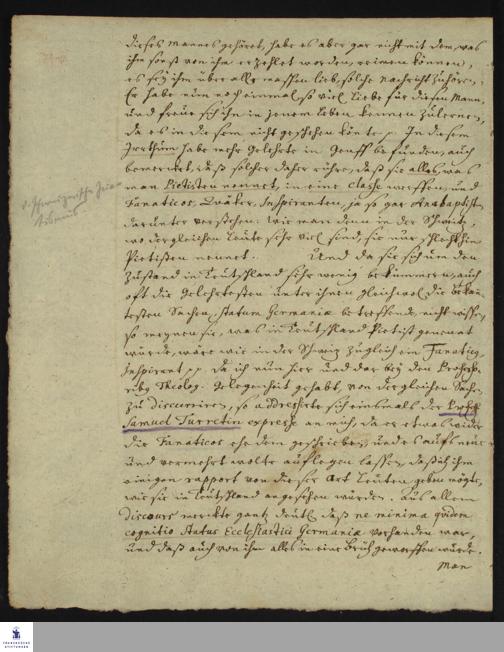 dieses Mannes gehöret, habe es aber gar nicht mit dem, was
ihm sonst von ihm erzehlet worden, reimen können,
es sey ihm über alle massen lieb, solche Nachricht zu hören,
Er habe nun noch einmal so viel Liebe für diesen Mann,
und freue sich ihn in jenem Leben kennen zu lernen,
da es in diesem nicht geschehen könte p. In diesem
Irrthum habe mehr Gelehrte in Genff befunden, auch
bemercket, daß solcher daher rühre, daß sie alles, was
man Pietisten nennet, in eine Classe werffen, und
Fanaticos, Qväker, Inspiranten, ja so gar Anabaptist.
darunter verstehen. Wie man denn in der Schweiz,
wo dergleichen Leute sehr viel sind, sie nur schlechthin
Pietisten nennet. Und da sie sich um den
Zustand in Teutschland sehr wenig bekümmern, auch
oft die Gelehrtesten unter ihnen gleichwol die bekan-
testen Sachen, Statum Germaniæ betreffende, nicht wissen,
so meynen sie, was in Teutschland Pietist genennt
würde, wäre wie in der Schweiz zugleich ein Fanaticus,
Inspirant pp. Da ich nun hier und dar bey den Professo-
ribus Theolog. Gelegenheit gehabt, von dergleichen Sachen
zu discurriren, so addressirte sich einsmals der Profess.
Samuel Turretin expresse an mich, da er etwas wider
die Fanaticos ehe dem geschrieben, und es aufs neue
und vermehrt wolte auflegen lassen, daß ich ihm
einigen rapport von dieser Art Leuten geben möge,
wie sie in Teutschland angesehen würden. Aus allem
Discours merckte gantz deutl. daß ne minima quidem
cognitio Status Ecclesiastici Germaniæ vorhanden war,
und daß auch von ihm alles in eine Brüh geworffen würde.
Man
FRANCKESCHE
STIFTUNGEN